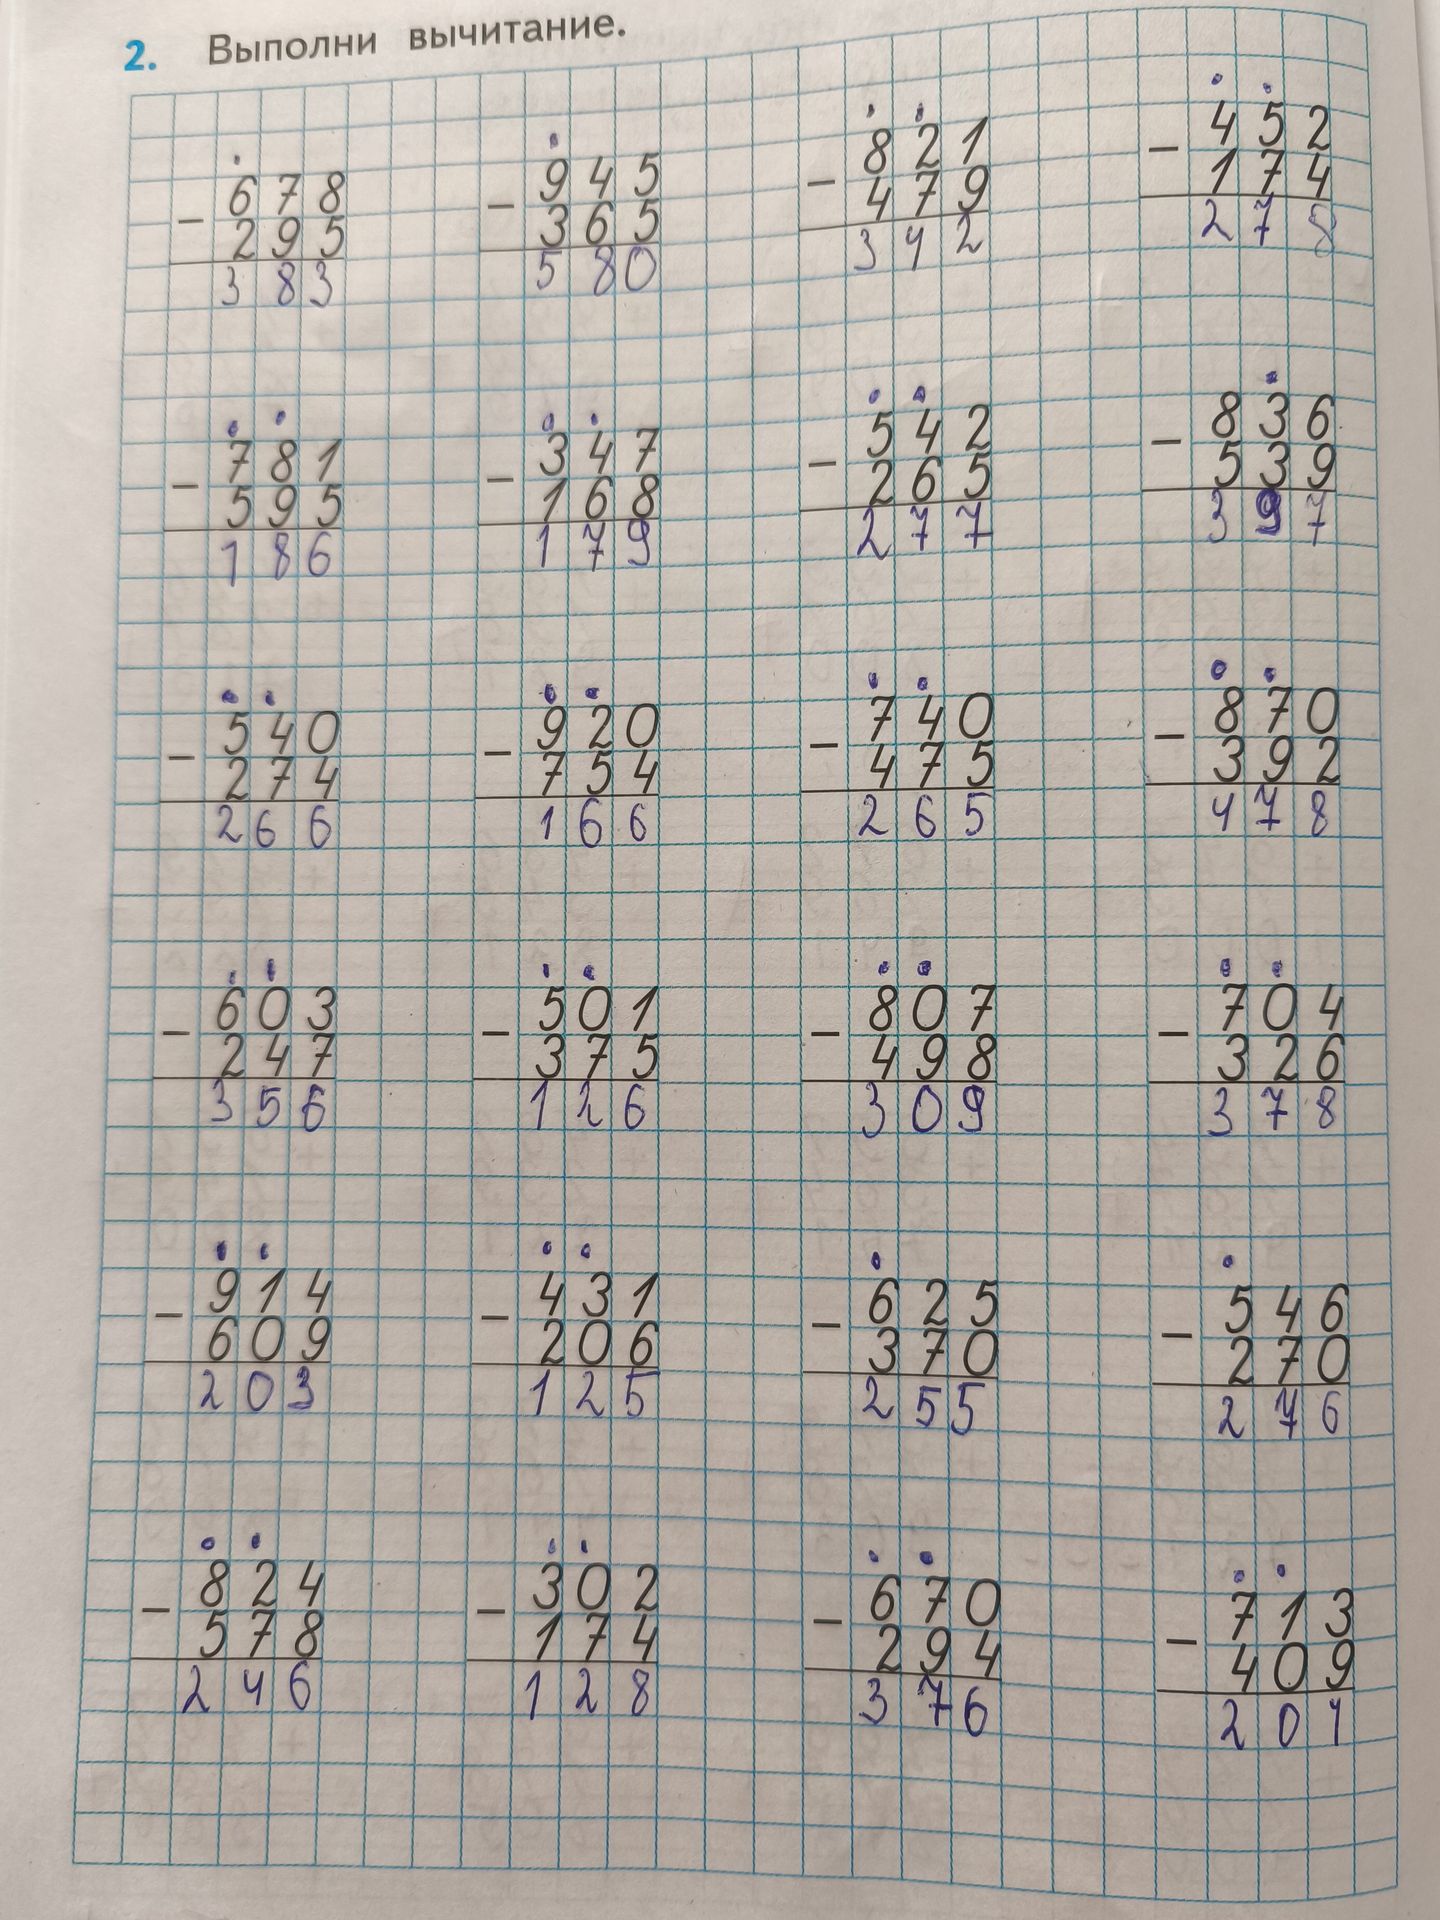 2. Выполни вычитание.
678 945 821 452
− − − −
295 365 479 174
383 580 342 278
781 347 542 836
− − − −
595 168 265 539
186 179 277 397
540 920 740 870
− − − −
274 754 475 392
266 166 265 478
603 501 807 704
− − − −
247 375 498 326
356 126 309 378
914 431 625 546
− − − −
609 206 370 270
203 125 255 276
824 302 670 713
− − − −
578 174 294 409
246 128 376 201